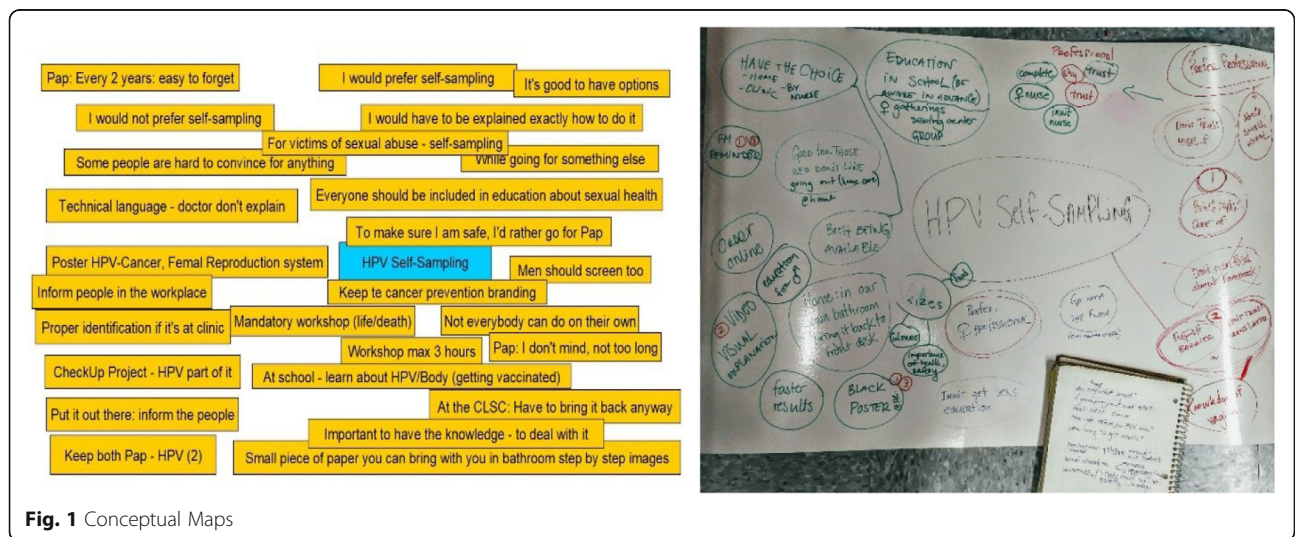 Pap: Every 2 years: easy to forget
I would prefer self-sampling
It's good to have options
I would not prefer self-sampling
I would have to be explained exactly how to do it
For victims of sexual abuse - self-sampling
Some people are hard to convince for anything
While going for something else
Technical language - doctor don't explain
Everyone should be included in education about sexual health
To make sure I am safe, I'd rather go for Pap
Poster HPV-Cancer, Femal Reproduction system
HPV Self-Sampling
Men should screen too
Inform people in the workplace
Keep te cancer prevention branding
Proper identification if it's at clinic
Mandatory workshop (life/death)
Not everybody can do on their own
Workshop max 3 hours
Pap: I don't mind, not too long
CheckUp Project - HPV part of it
At school - learn about HPV/Body (getting vaccinated)
Put it out there: inform the people
At the CLSC: Have to bring it back anyway
Important to have the knowledge - to deal with it
Keep both Pap - HPV (2)
Small piece of paper you can bring with you in bathroom step by step images
HAVE THE CHOICE
- HOME
- CLINIC - BY
NURSE
EDUCATION
IN SCHOOL (BE
AWARE IN ADVANCE)
♀ gatherings
sewing center
GROUP
Professional
complete
shy
trust
♀ nurse
trust
inuit
nurse
Prefer Professional
FM ① ③
REMINDER
GOOD FOR THOSE
WHO DON'T LIKE
going out (home care)
@home
HPV SELF-SAMPLING
①
Order
online
education
for
BOTH BEING
AVAILABLE
② VIDEO
VISUAL
EXPLANATION
Home: in our
own bathroom
bring it back to
front desk
food
Prizes
importance
of health,
safety
Prefer
♀ PROFESSIONAL
Go with
THE FLOW
②
faster
results
BLACK
POSTER
① ③
Inuit get less
education
knowledge of
Fig. 1 Conceptual Maps